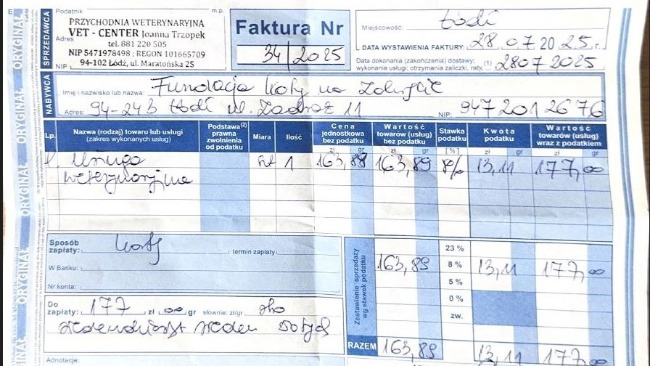 ORYGINAŁ
SPRZEDAWCA
Podatnik
m.p.
PRZYCHODNIA WETERYNARYJNA
VET - CENTER Joanna Trzopek
Adres
tel. 881 220 505
NIP 5471978498 ; REGON 101665709
NIP
94-102 Łódź, ul. Maratońska 25
Faktura Nr
34/2025
Miejscowość: Łódź
DATA WYSTAWIENIA FAKTURY: 28.07.2025r.
Data dokonania (zakończenia) dostawy:
wykonania usługi; otrzymania zaliczki, raty (1) 28.07.2025
NABYWCA
Imię i nazwisko lub nazwa: Fundacja Koty na
Adres: 94-243 Łódź ul. 11
NIP: 947 201 26 76
Lp.
Nazwa (rodzaj) towaru lub usługi
(zakres wykonanych usług)
Podstawa (2)
prawna
zwolnienia
od podatku
Miara
Ilość
Cena
jednostkowa
bez podatku
zł gr
Wartość
towarów (usług)
bez podatku
zł gr
Stawka
podatku
[%]
Kwota
podatku
zł gr
Wartość
towarów (usług)
wraz z podatkiem
zł gr
1. Usługa 1 163,89 163,89 8% 13,11 177,00
weterynaryjna
Sposób
zapłaty:
termin zapłaty:
W Banku:
Nr konta:
Zestawienie sprzedaży
wg stawek podatku
23 %
163,89 8 % 13,11 177,00
5 %
0 %
zw.
Do
zapłaty: 177 zł 00 gr słownie: zł/gr sto
siedemdziesiąt siedem złotych
RAZEM 163,89 13,11 177,00
Adnotacje: